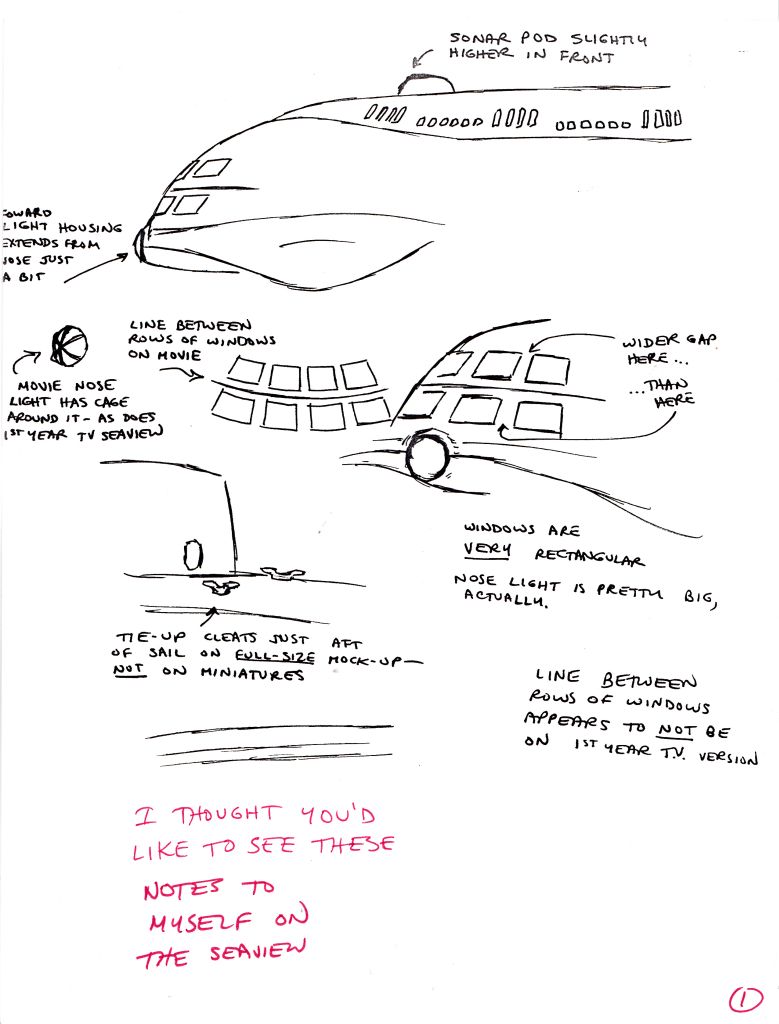 SONAR POD SLIGHTLY
HIGHER IN FRONT
FOWARD
LIGHT HOUSING
EXTENDS FROM
NOSE JUST
A BIT
LINE BETWEEN
ROWS OF WINDOWS
ON MOVIE
WIDER GAP
HERE...
...THAN
HERE
MOVIE NOSE
LIGHT HAS CAGE
AROUND IT - AS DOES
1ST YEAR TV SEAVIEW
WINDOWS ARE
VERY RECTANGULAR
NOSE LIGHT IS PRETTY BIG,
ACTUALLY.
TIE-UP CLEATS JUST AFT
OF SAIL ON FULL-SIZE MOCK-UP—
NOT ON MINIATURES
LINE BETWEEN
ROWS OF WINDOWS
APPEARS TO NOT BE
ON 1ST YEAR T.V. VERSION
I THOUGHT YOU'D
LIKE TO SEE THESE
NOTES TO
MYSELF ON
THE SEAVIEW
1